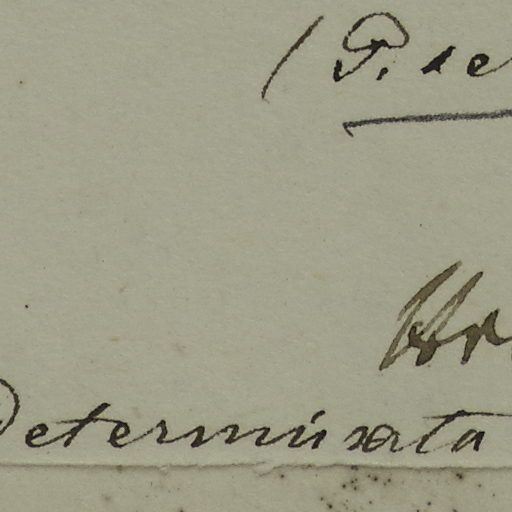 (P. se
Determinata